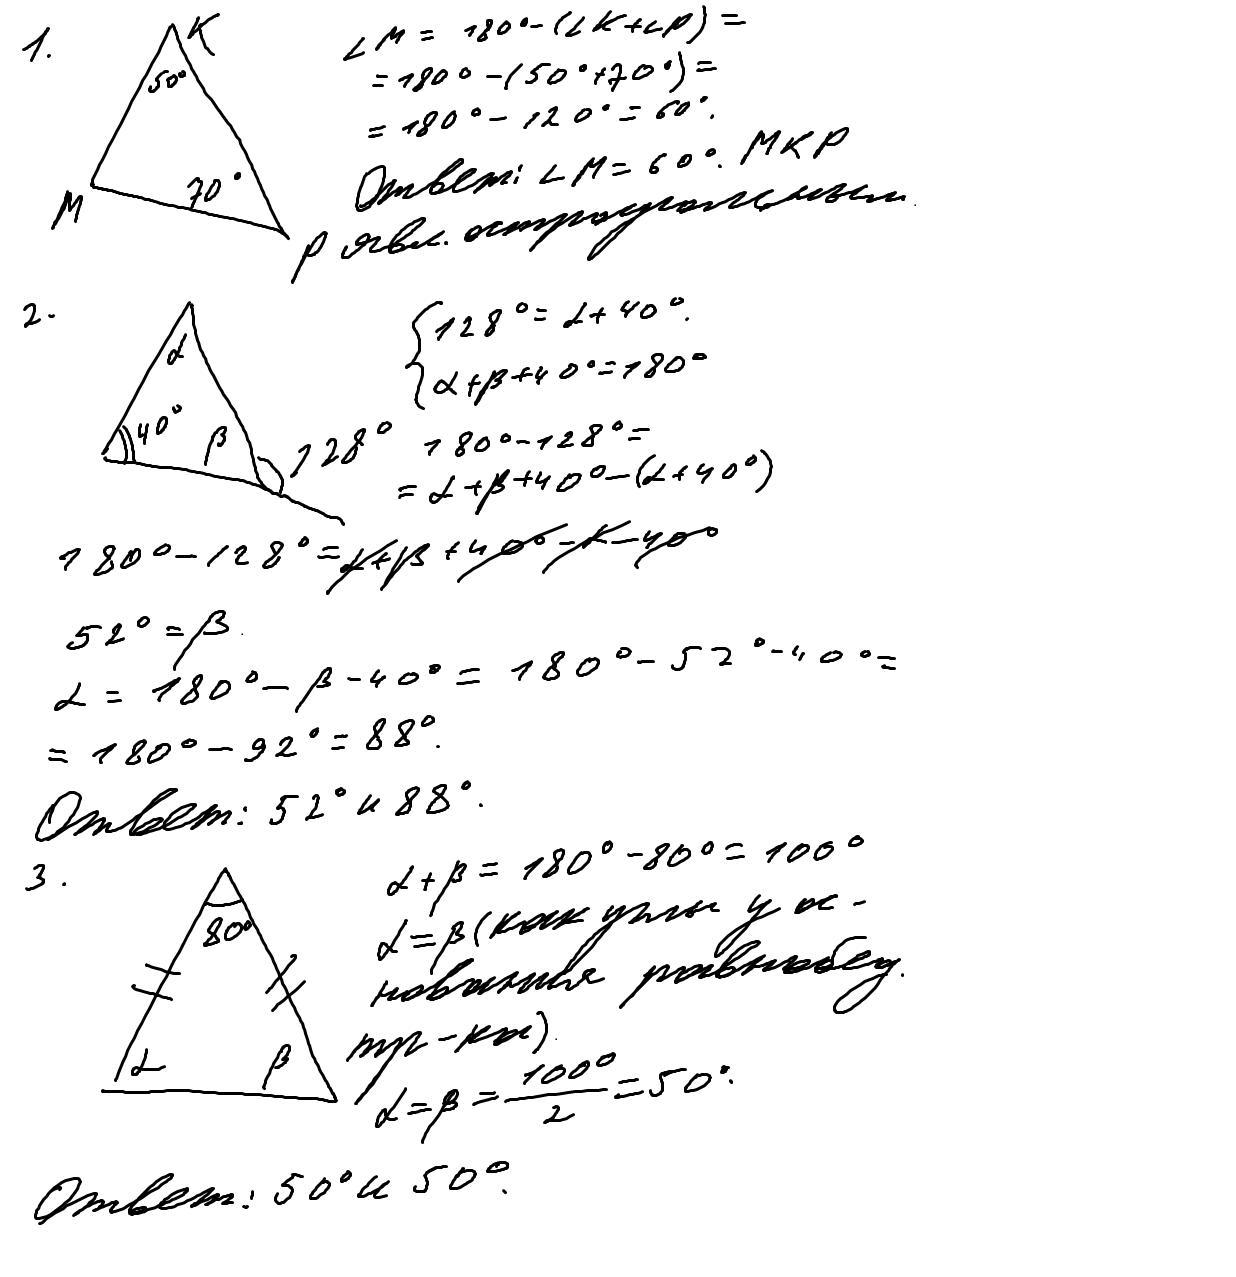 1.
K
50°
M
70°
P
∠M = 180° - (∠K+∠P) =
= 180° - (50°+70°) =
= 180° - 120° = 60°.
Ответ: ∠M = 60°. MKP
явл. остроугольным.
2.
α
40°
β
128°
{128° = α + 40°.
α + β + 40° = 180°
180° - 128° =
= α + β + 40° - (α + 40°)
180° - 128° = α + β + 40° - α - 40°
52° = β.
α = 180° - β - 40° = 180° - 52° - 40° =
= 180° - 92° = 88°.
Ответ: 52° и 88°.
3.
80°
α
β
α + β = 180° - 80° = 100°
α = β (как углы у ос-
нования равнобед.
тр-ка).
α = β = 100°/2 = 50°.
Ответ: 50° и 50°.